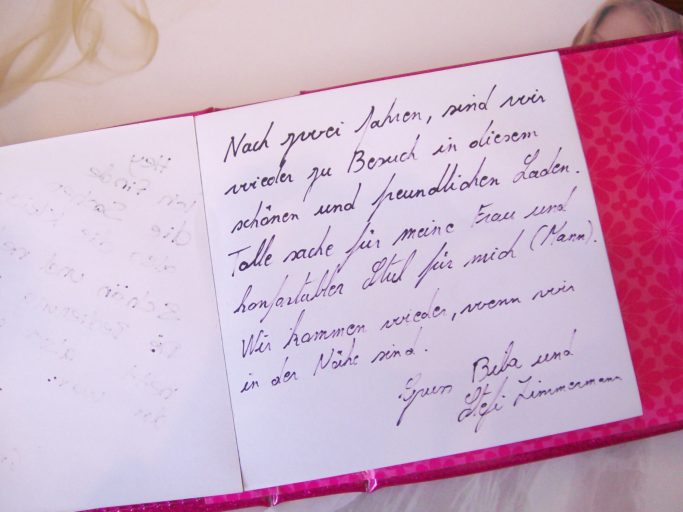 Nach zwei Jahren, sind wir
wieder zu Besuch in diesem
schönen und freundlichen Laden.
Tolle sache für meine Frau und
konfortabler Stul für mich (Mann).
Wir kommen wieder, wenn wir
in der Nähe sind.
Gruss Biba und
Stefi Zimmermann